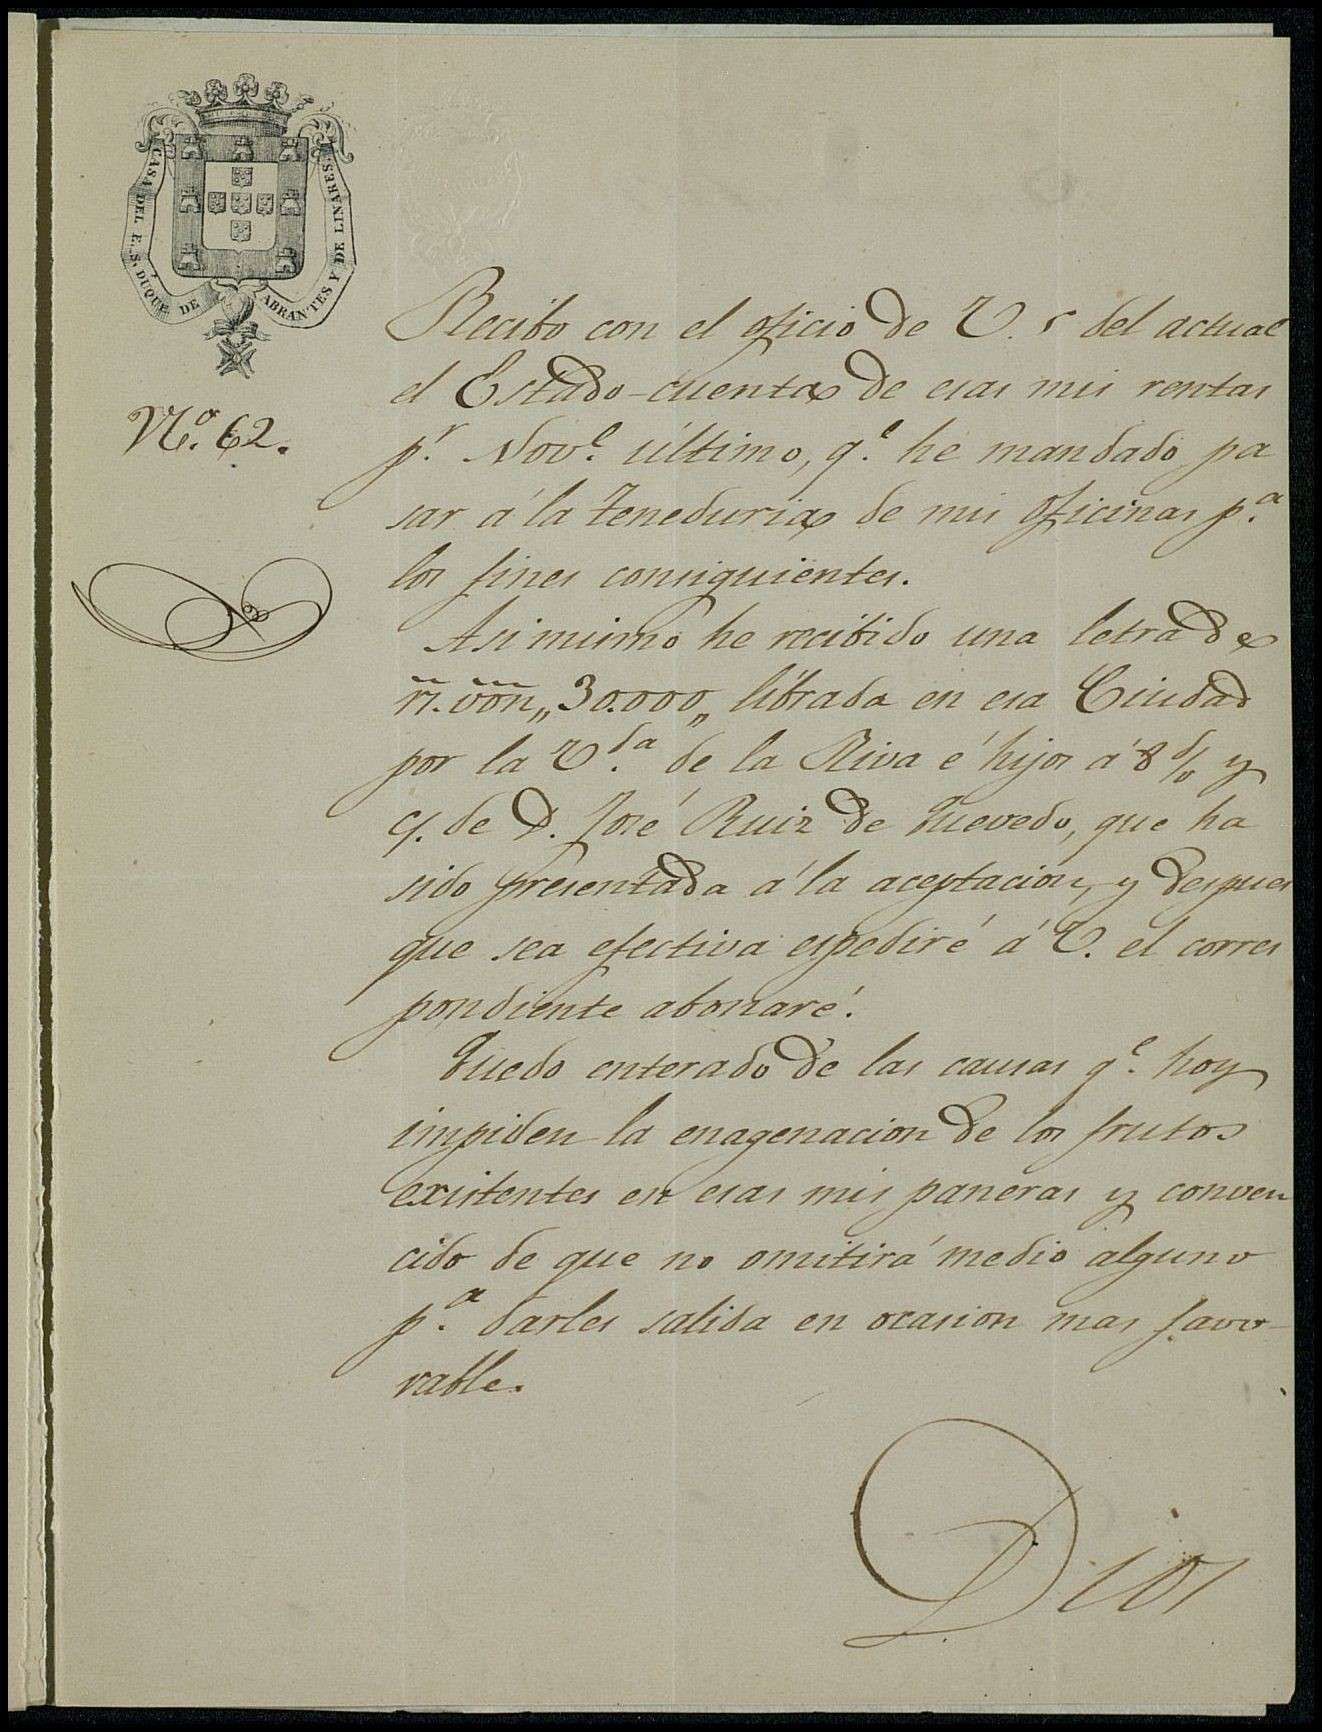 CASA DEL E. S. DUQUE DE ABRANTES Y DE LINARES
Nº. 62.
Recibo con el oficio de V. 5 del actual
el Estado-cuenta de esas mis rentas
pr. Nove. último, qe. he mandado pa
sar á la Teneduria de mis oficinas pa.
los fines consiguientes.
Asi mismo he recibido una letra de
rs. von „ 30.000 „ librada en esa Ciudad
por la Vda. de la Riva é hijos á 8 d/v y
c/. de D. José Ruiz de Quevedo, que ha
sido presentada á la aceptacion, y despues
que sea efectiva espediré á V. el corres
pondiente abonaré.
Quedo enterado de las causas qe. hoy
impiden la enagenacion de los frutos
existentes en esas mis paneras y conven
cido de que no omitirá medio alguno
pa. darles salida en ocasion mas favo-
rable.
Dios